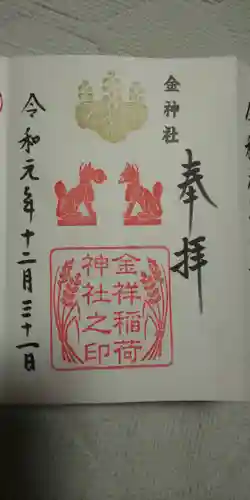 奉拝
金神社
金祥稲荷
神社之印
令和元年十二月三十一日